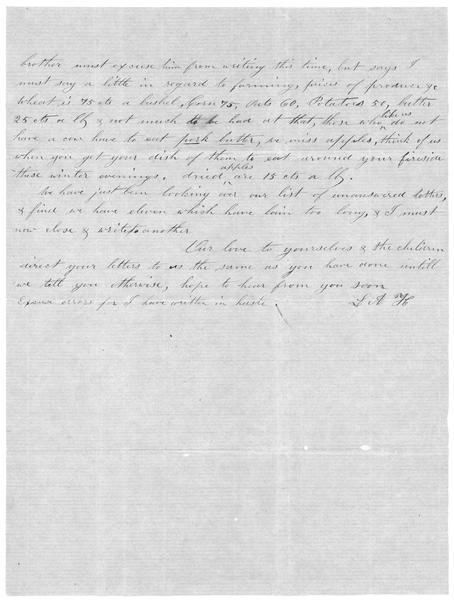 brother must excuse him from writing this time, but says I
must say a little in regard to farming, prices of produce &c
Wheat is 75 cts a bushel, Corn 75, Oats 60, Potatoes 50, butter
25 cts a lb & not much to be had at that, those who like us do not
have a cow have to eat pork butter, we miss apples, think of us
when you get your dish of them to eat around your fireside
these winter evenings. dried apples are 15 cts a lb.
We have just been looking over our list of unanswered letters,
& find we have eleven which have lain too long, & I must
now close & write another
Our love to yourselves & the children
direct your letters to us the same as you have done untill
we tell you otherwise, hope to hear from you soon
Excuse errors for I have written in haste. L A H